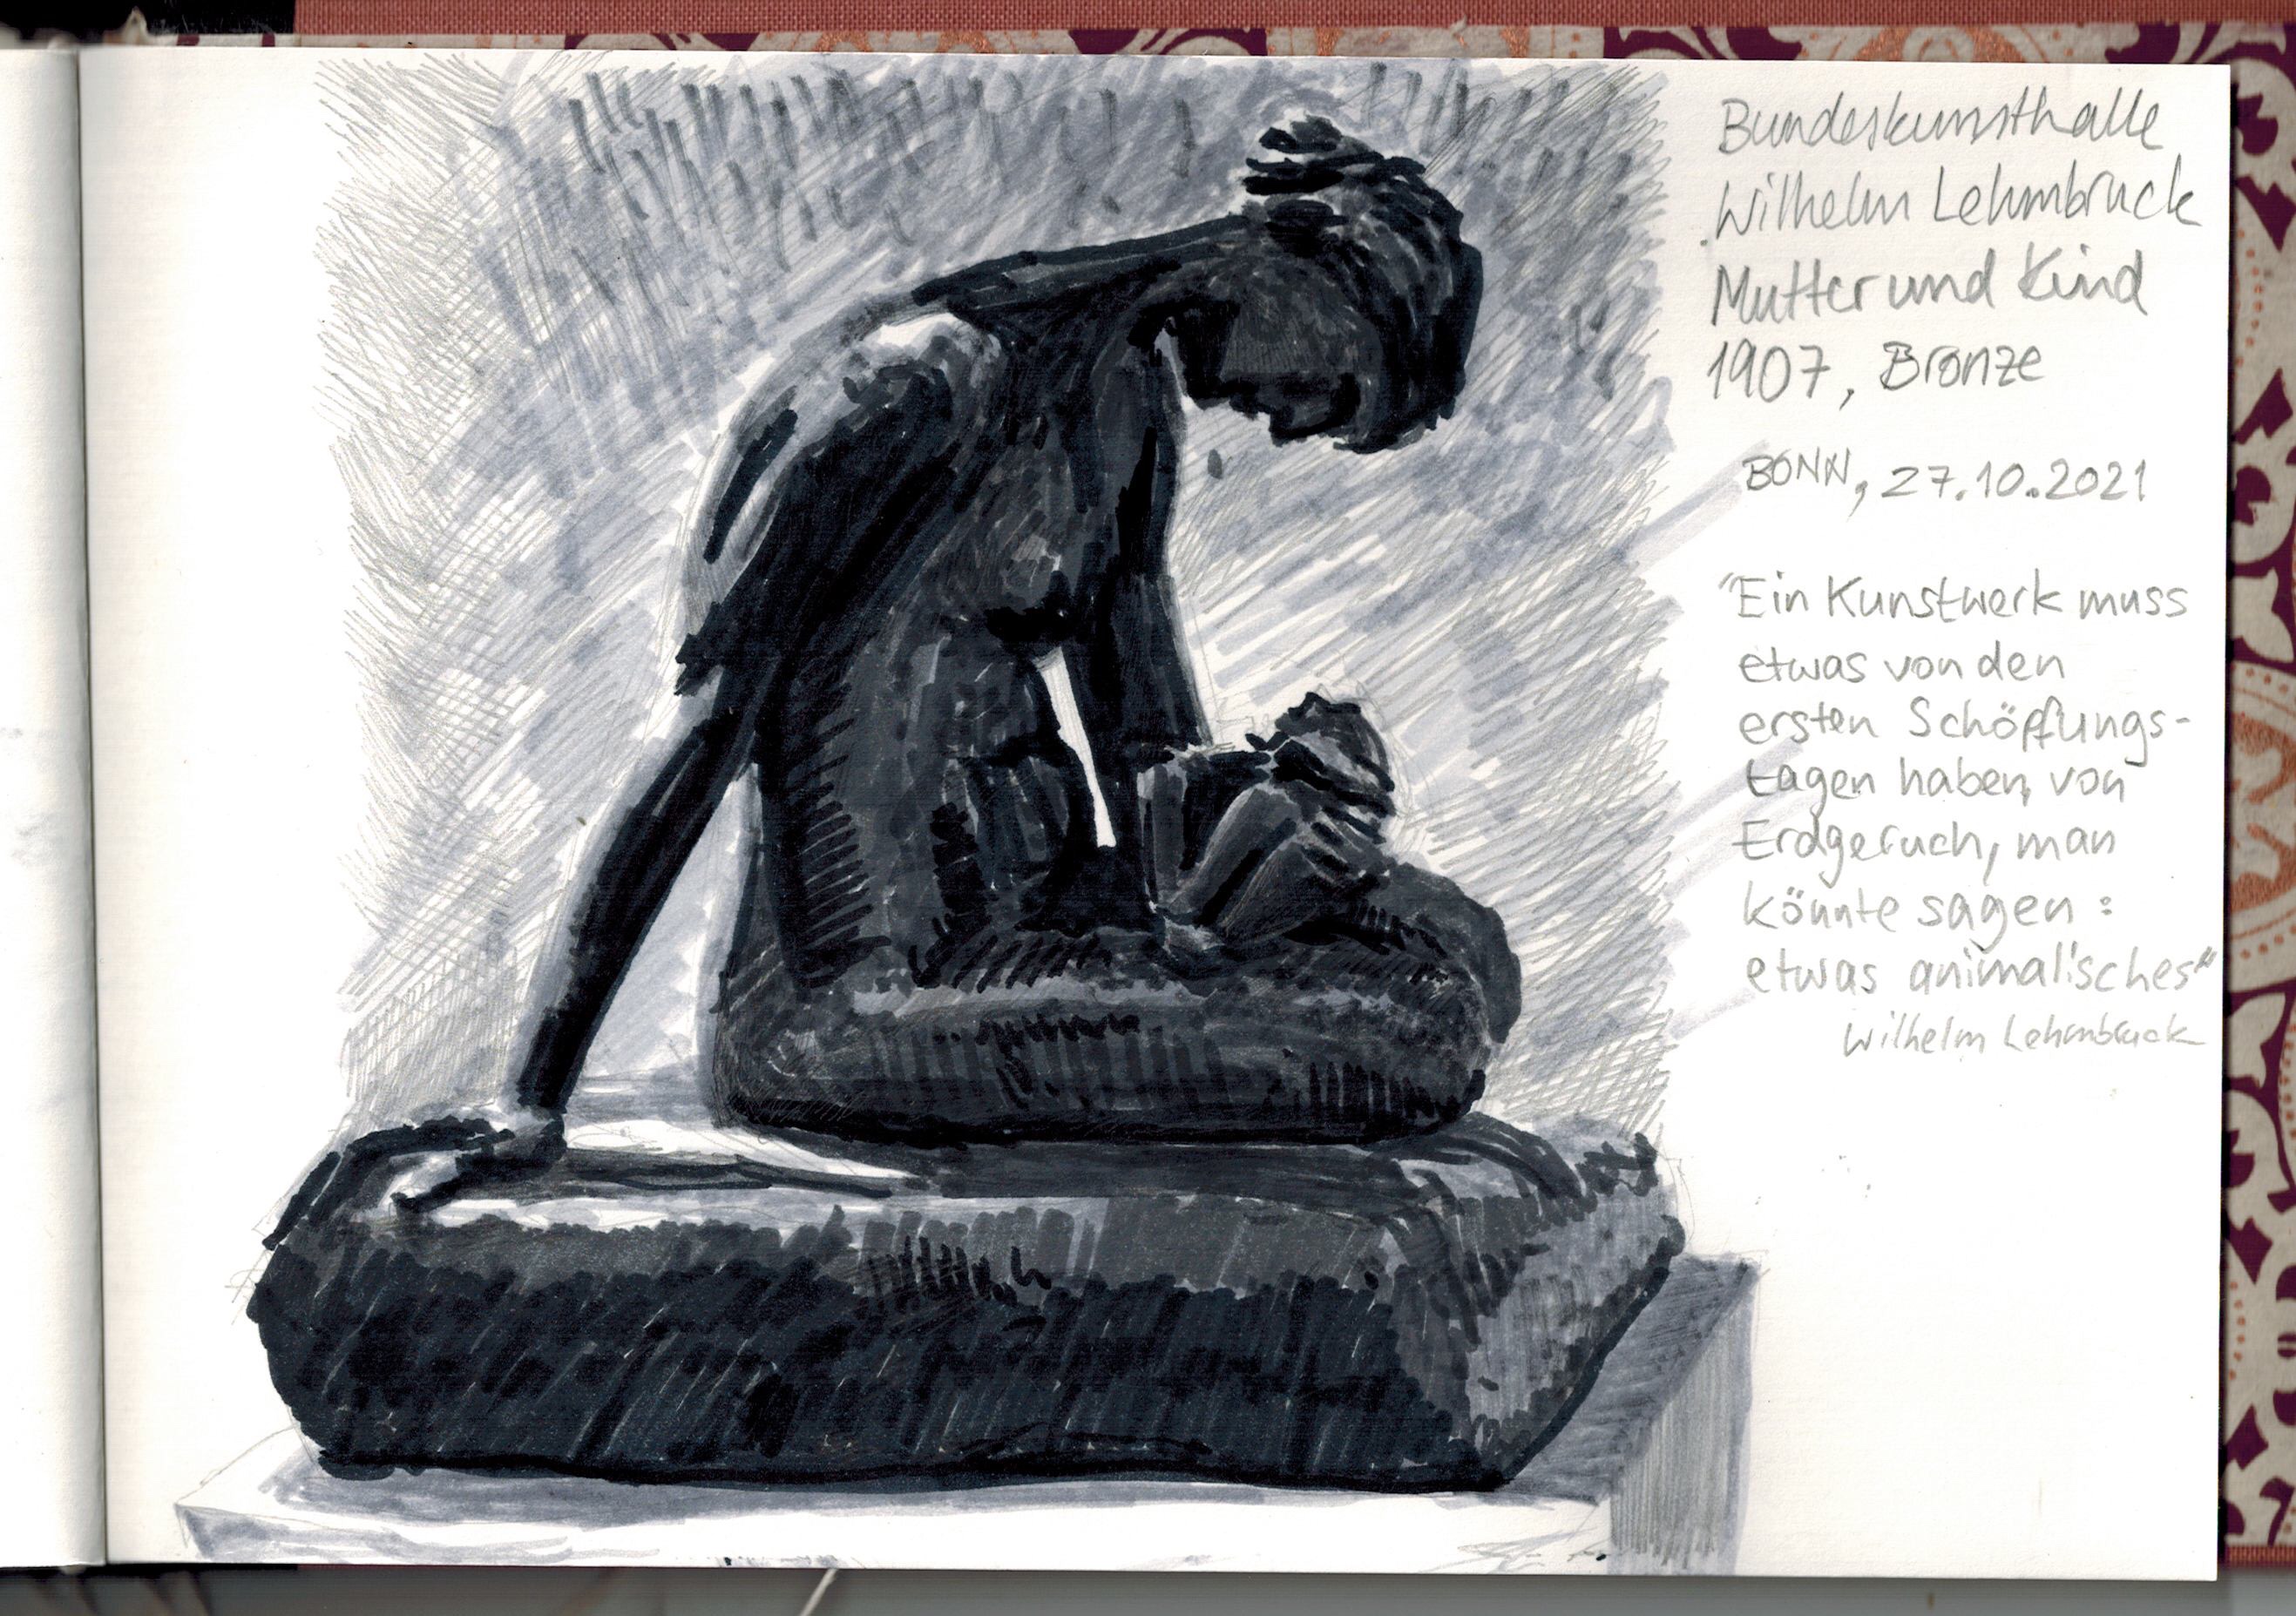 Bundeskunsthalle
Wilhelm Lehmbruck
Mutter und Kind
1907, Bronze
BONN, 27.10.2021
"Ein Kunstwerk muss
etwas von den
ersten Schöpfungs-
tagen haben, von
Erdgeruch, man
könnte sagen:
etwas animalisches"
Wilhelm Lehmbruck